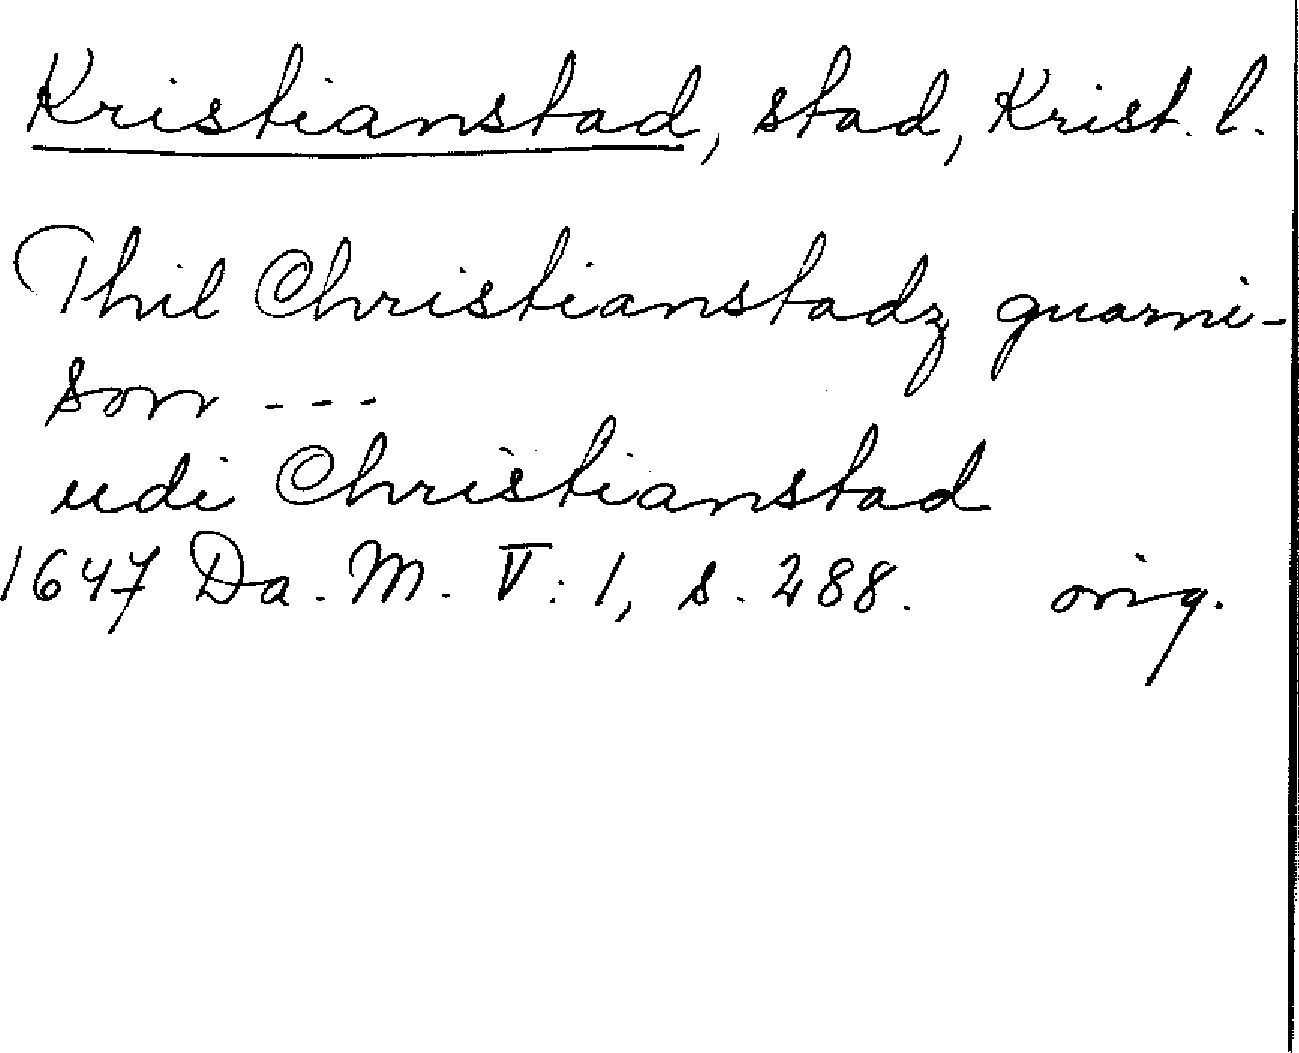 Kristianstad, stad, Krist. l.
Thil Christianstadz guarni-
son ---
udi Christianstad
1647 Da. M. V: 1, s. 288. orig.